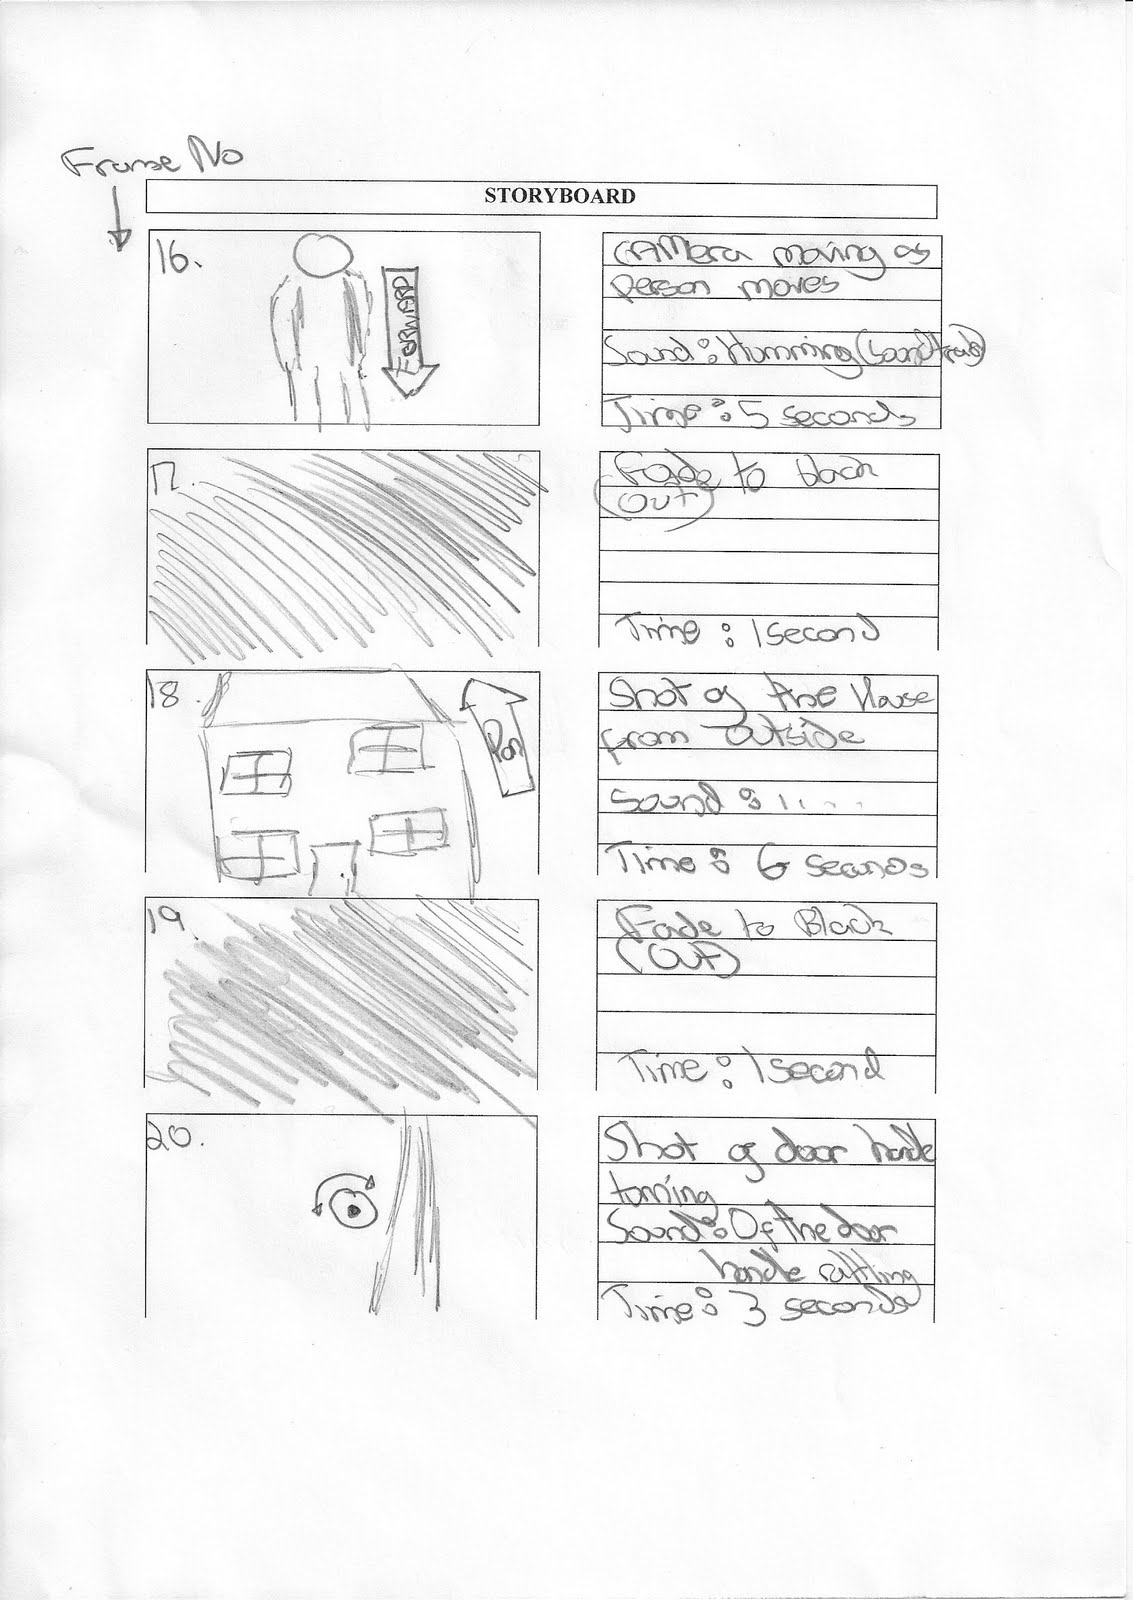 Frame No
STORYBOARD
16.
FORWARD
CAMera moving as
person moves
Sound: Humming (Soundtrack)
Time: 5 seconds
17.
Fade to black
(out)
Time: 1 second
18.
Pan
Shot of the House
from outside
Sound: " . . .
Time: 6 seconds
19.
Fade to Black
(out)
Time: 1 second
20.
Shot of door handle
turning
Sound: Of the door
handle rattling
Time: 3 seconds